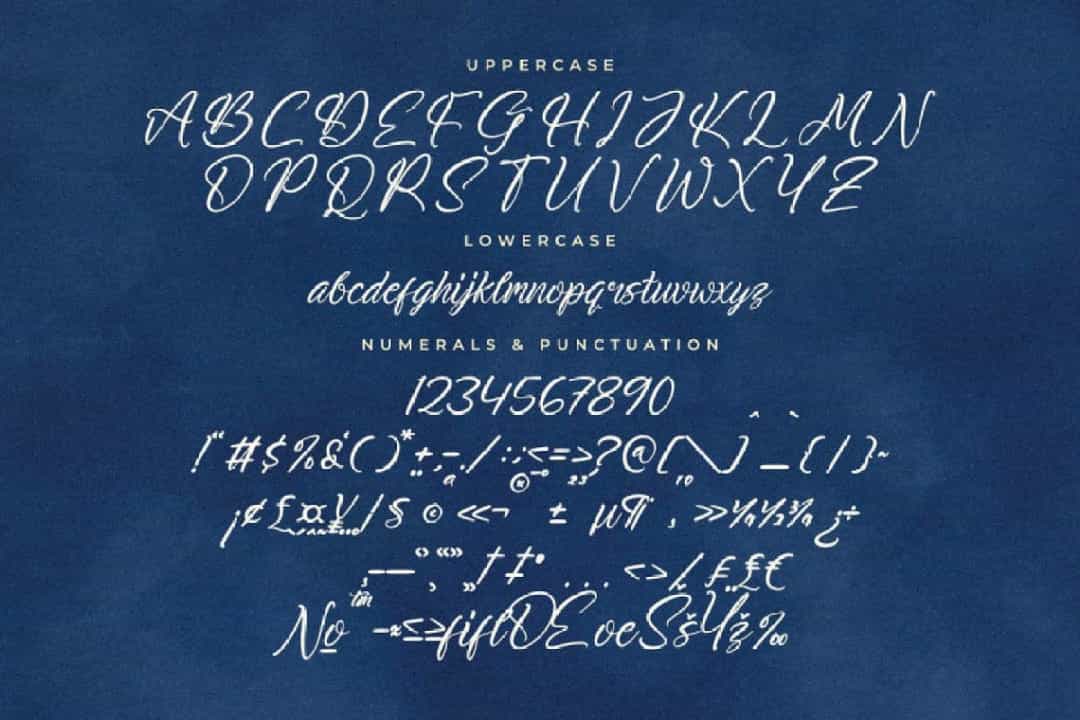 UPPERCASE
ABCDEFGHIJKLMN
OPQRSTUVWXYZ
LOWERCASE
abcdefghijklmnopqrstuvwxyz
NUMERALS & PUNCTUATION
1234567890
!"#$%&'()*+,-./:;<=>?@[\]^_`{|}~
¡¢£¤¥¦§¨©ª«¬®¯°±²³´µ¶·¸¹º»¼½¾¿÷
–—‘’‚“”„†‡•…‹›⁄₣₤€
№™−≈≤≥fiflŒœŠšŸž‰